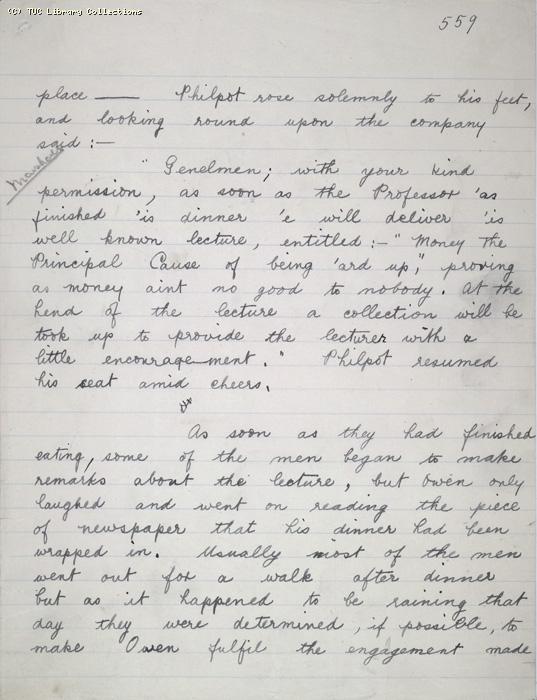 (C) TUC Library Collections
559
place —— Philpot rose solemnly to his feet,
and looking round upon the company
said :—
"Genelmen; with your kind
permission, as soon as the Professor 'as
finished 'is dinner 'e will deliver 'is
well known lecture, entitled :— "Money the
Principal Cause of being 'ard up", proving
as money aint no good to nobody. At the
hend of the lecture a collection will be
took up to provide the lecturer with a
little encourage—ment." Philpot resumed
his seat amid cheers.
As soon as they had finished
eating, some of the men began to make
remarks about the lecture, but Owen only
laughed and went on reading the piece
of newspaper that his dinner had been
wrapped in. Usually most of the men
went out for a walk after dinner
but as it happened to be raining that
day they were determined, if possible, to
make Owen fulfil the engagement made